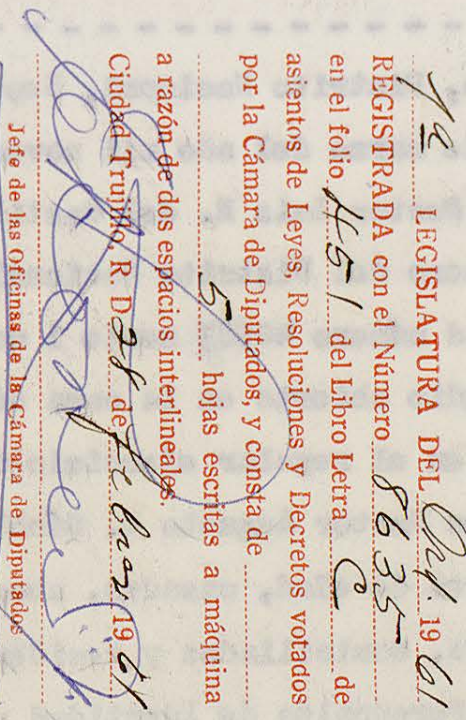 1ª LEGISLATURA DEL Ord. 1961
REGISTRADA con el Número 8635
en el folio 451 del Libro Letra C de
asientos de Leyes, Resoluciones y Decretos votados
por la Cámara de Diputados, y consta de
5 hojas escritas a máquina
a razón de dos espacios interlineales.
Ciudad Trujillo, R D 28 de Febrero 1961
Jefe de las Oficinas de la Cámara de Diputados